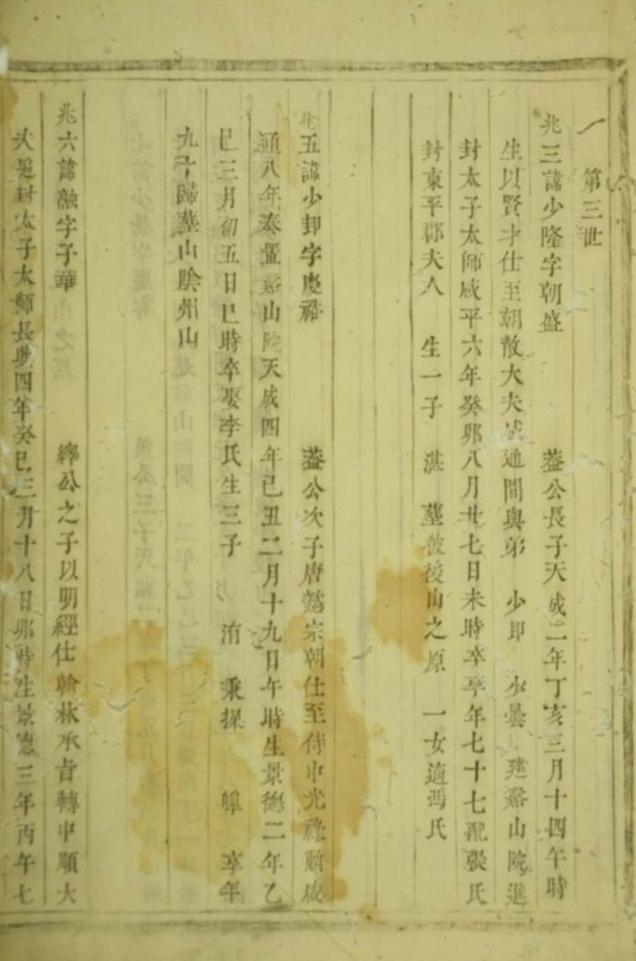 第三世
兆三諱少隆字朝盛 蓋公長子天成二年丁亥三月十四午時
生以賢才仕至朝散大夫咸通間與弟 少卽 少曇 建嵠山院進
封太子太師咸平六年癸卯八月廿七日未時卒享年七十七配張氏
封東平郡夫人 生一子 湛 墓彼後山之原 一女適馮氏
兆五諱少卽字慶 蓋公次子唐懿宗朝仕至侍中光祿 咸
通八年奏置嵠山院天成四年己丑二月十九日午時生景德二年乙
巳三月初五日巳時卒娶李氏生三子 洧 秉操 埠 享年
九十歸墓山陰州山
兆六諱融字子華 繹公之子以明經仕翰林承旨轉中順大
夫 封太子太師長興四年癸巳三月十八日卯時生景 三年丙午七